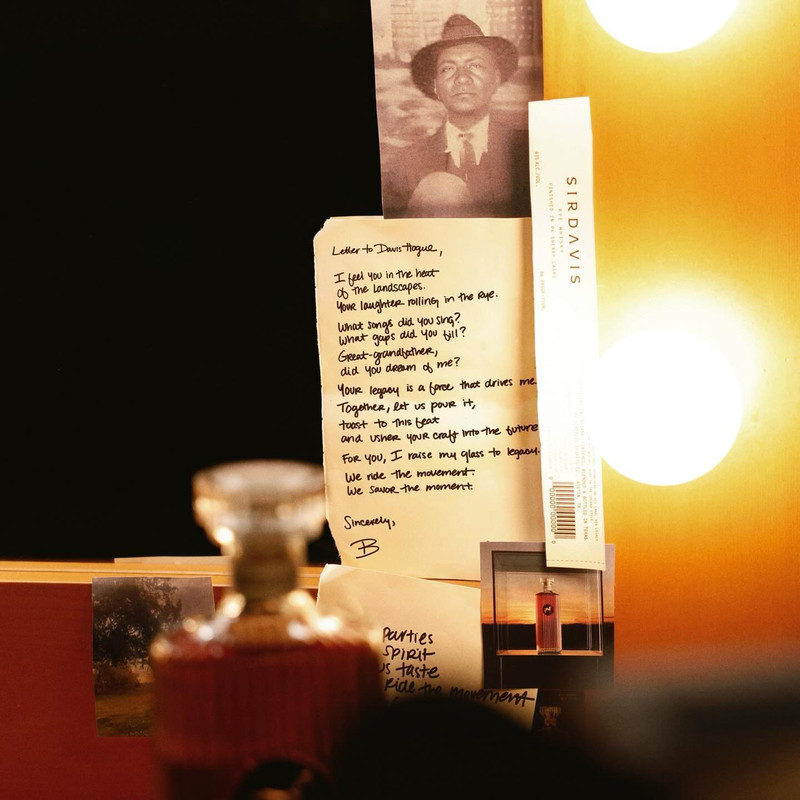 Letter to Davis Hogue,
I feel you in the heat
of the landscapes.
Your laughter rolling in the rye.
What songs did you sing?
What gaps did you fill?
Great-grandfather,
did you dream of me?
Your legacy is a force that drives me.
Together, let us pour it,
toast to this feat
and usher your craft into the future
For you, I raise my glass to legacy.
We ride the movement.
We savor the moment.
Sincerely,
B
SIRDAVIS
RYE WHISKY
FINISHED IN SHERRY CASKS
Parties
Spirit
taste
ride the movement